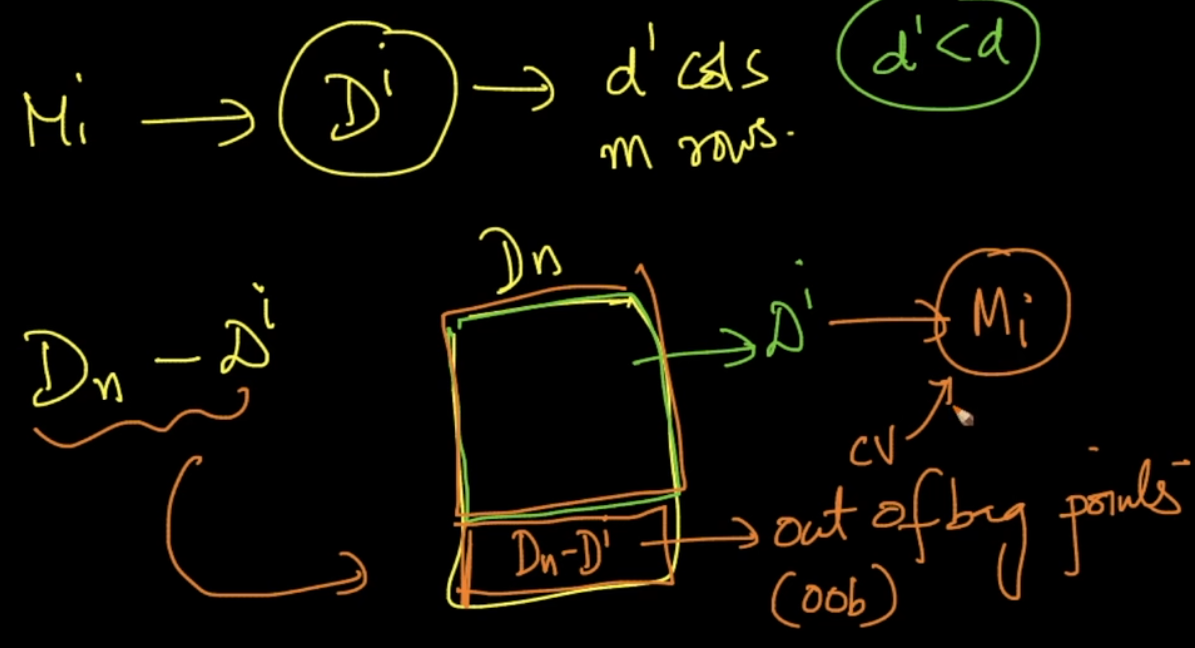 Mi → Dⁱ → d' cols
m rows.
d' < d
Dn
Dn - Dⁱ
→ Dⁱ → Mi
CV
Dn-Dⁱ → out of bag points
(oob)